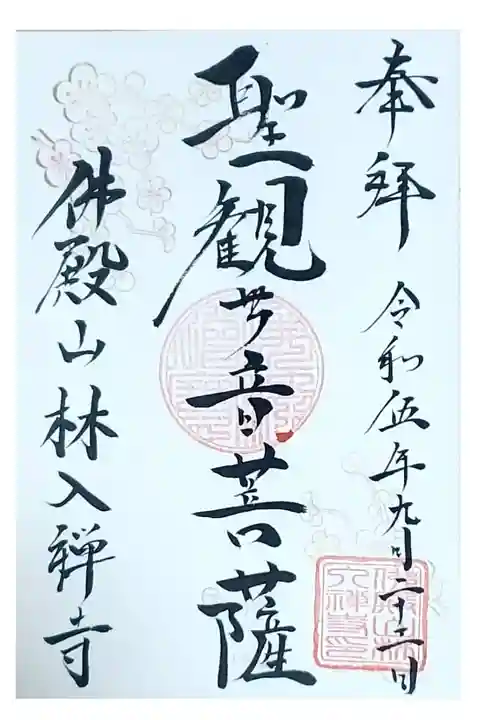 奉拝 令和伍年九月二十二日
聖観世音菩薩
佛殿山林入禅寺